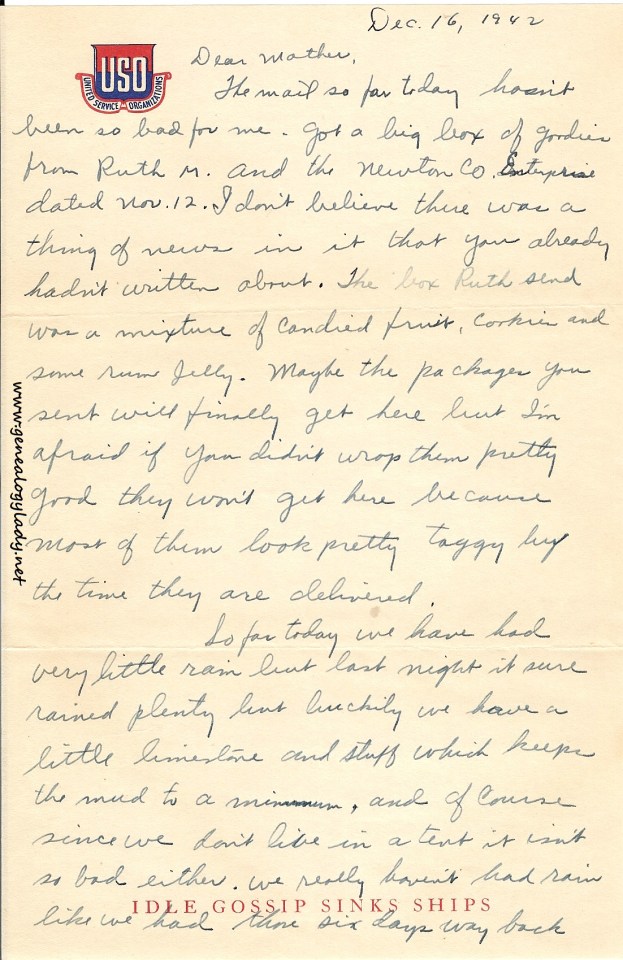 Dec. 16, 1942
USO
UNITED SERVICE ORGANIZATIONS
Dear Mother,
The mail so far today hasn't
been so bad for me. Got a big box of goodies
from Ruth M. and the Newton Co. Enterprise
dated Nov. 12. I don't believe there was a
thing of news in it that you already
hadn't written about. The box Ruth send
was a mixture of candied fruit, cookies and
some rum Jelly. Maybe the packages you
sent will finally get here but I'm
afraid if you didn't wrap them pretty
good they won't get here because
most of them look pretty taggy by
the time they are delivered.
So far today we have had
very little rain but last night it sure
rained plenty but luckily we have a
little limestone and stuff which keeps
the mud to a minimum, and of course
since we don't live in a tent it isn't
so bad either. We really haven't had rain
IDLE GOSSIP SINKS SHIPS
like we had those six days way back
www.genealogylady.net